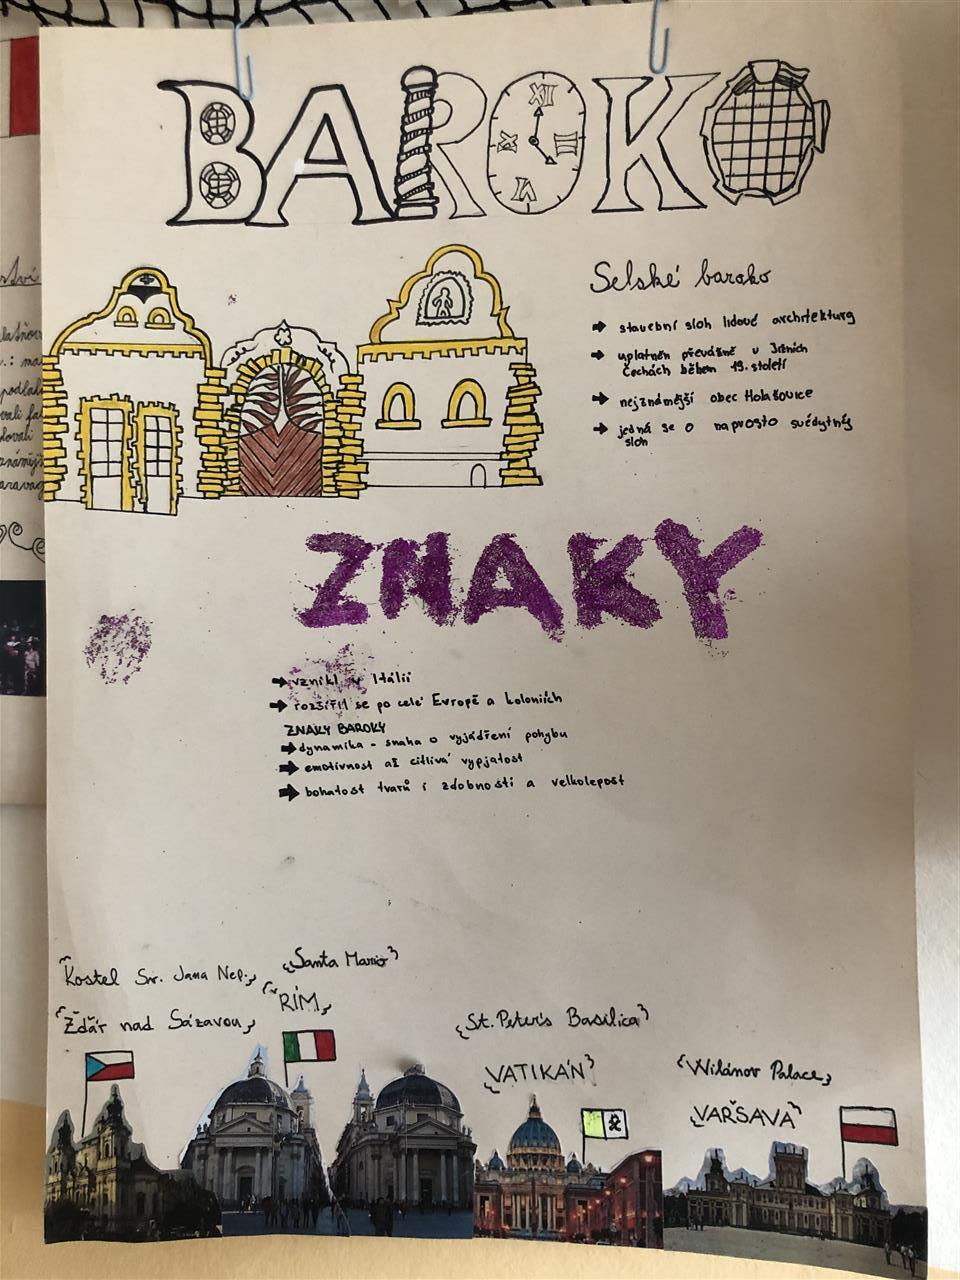 BAROKO
Selské baroko
➡ stavební sloh lidové architektury
➡ uplatněn převážně v Jižních
Čechách během 19. století
➡ nejznámější obec Holašovice
➡ jedná se o naprosto svédytný
sloh
ZNAKY
➡ vznikl v Itálii
➡ rozšířil se po celé Evropě a koloniích
ZNAKY BAROKY
➡ dynamika - snaha o vyjádření pohybu
➡ emotivnost až citlivá vypjatost
➡ bohatost tvarů i zdobnosti a velkolepost
Kostel Sv. Jana Nep.
Žďár nad Sázavou
Santa Maria
ŘÍM
St. Peter's Basilica
VATIKÁN
Wilánov Palace
VARŠAVA